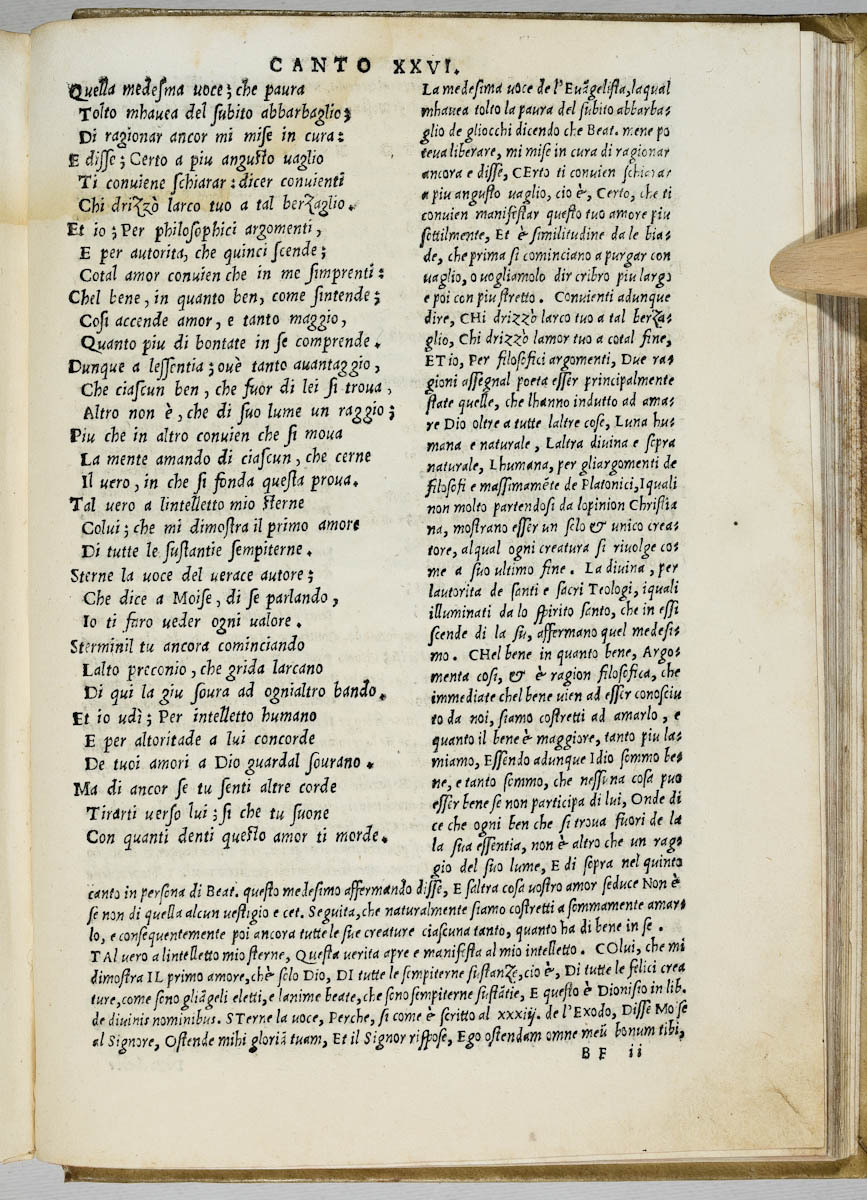 CANTO XXVI.
Quella medesma uoce; che paura
Tolto mhauea del subito abbarbaglio;
Di ragionar ancor mi mise in cura:
E disse; Certo a piu angusto uaglio
Ti conuiene schiarar: dicer conuienti
Chi drizzò larco tuo a tal berzaglio.
Et io; Per philosophici argomenti,
E per autorita, che quinci scende;
Cotal amor conuien che in me simprenti:
Chel bene, in quanto ben, come sintende;
Cosi accende amor, e tanto maggio,
Quanto piu di bontate in se comprende.
Dunque a lessentia; ouè tanto auantaggio,
Che ciascun ben, che fuor di lei si troua,
Altro non è, che di suo lume un raggio;
Piu che in altro conuien che si moua
La mente amando di ciascun, che cerne
Il uero, in che si fonda questa proua.
Tal uero a lintelletto mio sterne
Colui; che mi dimostra il primo amore
Di tutte le sustantie sempiterne.
Sterne la uoce del uerace autore;
Che dice a Moise, di se parlando,
Io ti faro ueder ogni ualore.
Sterminil tu ancora cominciando
Lalto preconio, che grida larcano
Di qui la giu soura ad ognialtro bando.
Et io udì; Per intelletto humano
E per altoritade a lui concorde
De tuoi amori a Dio guardal sourano.
Ma di ancor se tu senti altre corde
Tirarti uerso lui; si che tu suone
Con quanti denti questo amor ti morde.
La medesima uoce de l'Euāgelista, laqual
mhauea tolto la paura del subito abbarba-
glio de gliocchi dicendo che Beat. mene po
teua liberare, mi mise in cura di ragionar
ancora e disse, CErto ti conuien schiarar
a piu angusto uaglio, cio è, Certo, che ti
conuien manifestar questo tuo amore piu
sottilmente, Et è similitudine da le bia-
de, che prima si cominciano a purgar con
uaglio, o uogliamolo dir cribro piu largo
e poi con piu stretto. Conuienti adunque
dire, CHi drizzò larco tuo a tal berza-
glio, Chi drizzò lamor tuo a cotal fine,
ET io, Per filosofici argomenti, Due ra-
gioni assegnal poeta esser principalmente
state quelle, che lhanno indutto ad ama-
re Dio oltre a tutte laltre cose, Luna hu-
mana e naturale, Laltra diuina e sopra
naturale, Lhumana, per gliargomenti de
filosofi e massimamēte de Platonici, I quali
non molto partendosi da lopinion Christia
na, mostrano esser un solo & unico crea-
tore, alqual ogni creatura si riuolge co-
me a suo ultimo fine. La diuina, per
lautorita de santi e sacri Teologi, iquali
illuminati da lo spirito santo, che in essi
scende di la su, affermano quel medesi-
mo. CHel bene in quanto bene, Argo-
menta cosi, & è ragion filosofica, che
immediate chel bene uien ad esser conosciu
to da noi, siamo costretti ad amarlo, e
quanto il bene è maggiore, tanto piu la-
miamo, Essendo adunque Idio sommo be-
ne, e tanto sommo, che nessuna cosa puo
esser bene se non participa di lui, Onde di
ce che ogni ben che si troua fuori de la
la sua essentia, non è altro che un rag-
gio del suo lume, E di sopra nel quinto
canto in persona di Beat. questo medesimo affermando disse, E saltra cosa uostro amor seduce Non è
se non di quella alcun uestigio e cet. Seguita, che naturalmente siamo costretti a sommamente amar-
lo, e consequentemente poi ancora tutte le sue creature ciascuna tanto, quanto ha di bene in se.
TAl uero a lintelletto mio sterne, Questa uerita apre e manifesta al mio intelletto. COlui, che mi
dimostra IL primo amore, ch'è solo Dio, DI tutte le sempiterne sustanze, cio è, Di tutte le felici crea
ture, come sono gliāgeli eletti, e lanime beate, che sono sempiterne sustātie, E questo è Dionisio in lib.
de diuinis nominibus. STerne la uoce, Perche, si come è scritto al xxxiij. de l'Exodo, Disse Moise
al Signore, Ostende mihi gloriā tuam, Et il Signor rispose, Ego ostendam omne meū bonum tibi,
BF ii